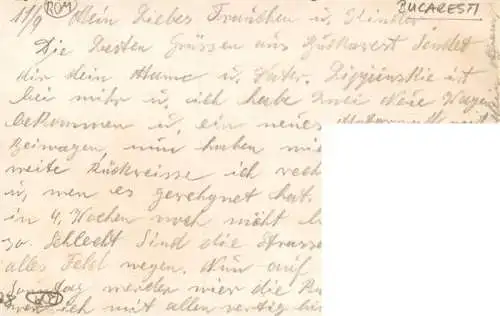 ROM
BUCARESTI
11/9 Mein Liebes Frauchen u. Kinder
Die besten Grüssen aus Bükarest Sendet
dir dein Mame u. Vater. Lipjinskie ist
bei mihr u. ich habe zwei Neue Wagen
bekommen u, ein neues
Beiwagen, nun haben wie
weite Rückreisse ich rech
u, wen es geregnet hat.
in 4, Wochen noch nicht
so. Schlecht Sind die Strasse
alles Feld wegen. Nun auf
Sonntag werden wier die Rü
ich mit allen vertig bin